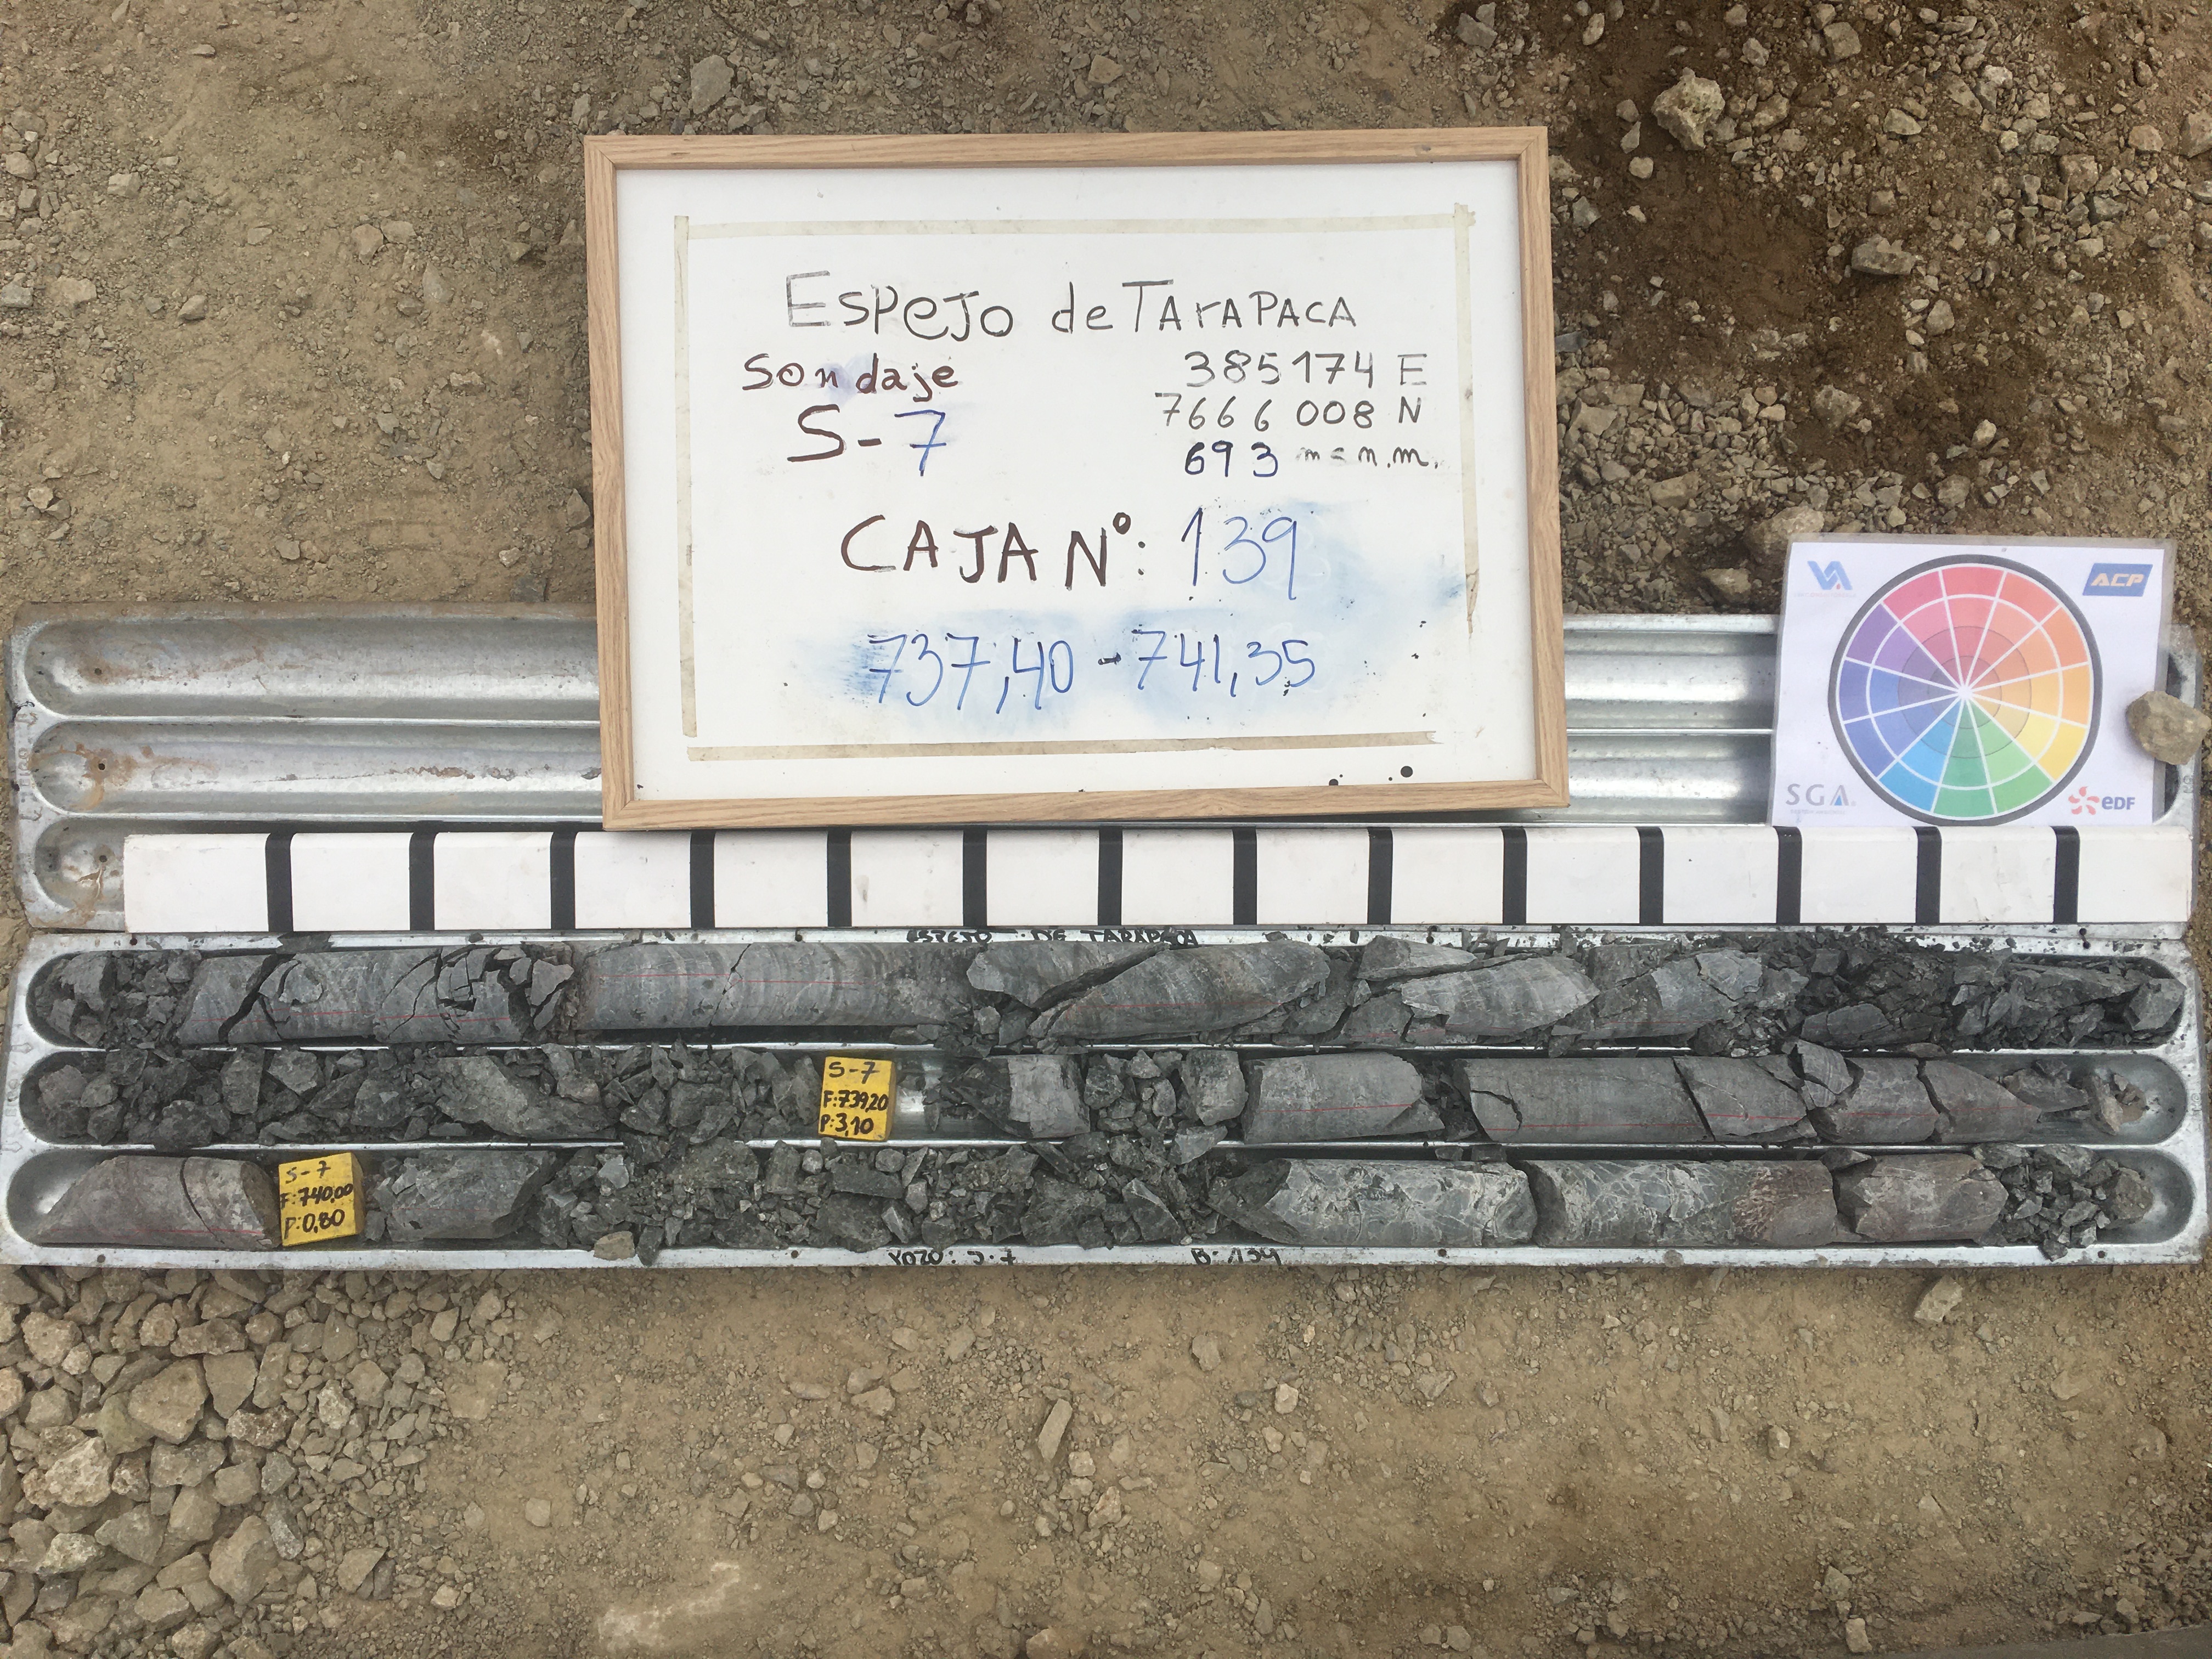 Espejo de Tarapaca
Sondaje
S-7
385174 E
7666 008 N
693 m s n.m.
CAJA N°: 139
737,40 - 741,35
ACP
SGA
edf
ESPEJO DE TARAPACA
S-7
F:739,20
P:3,10
S-7
F:740,00
P:0,80
POZO: S-7